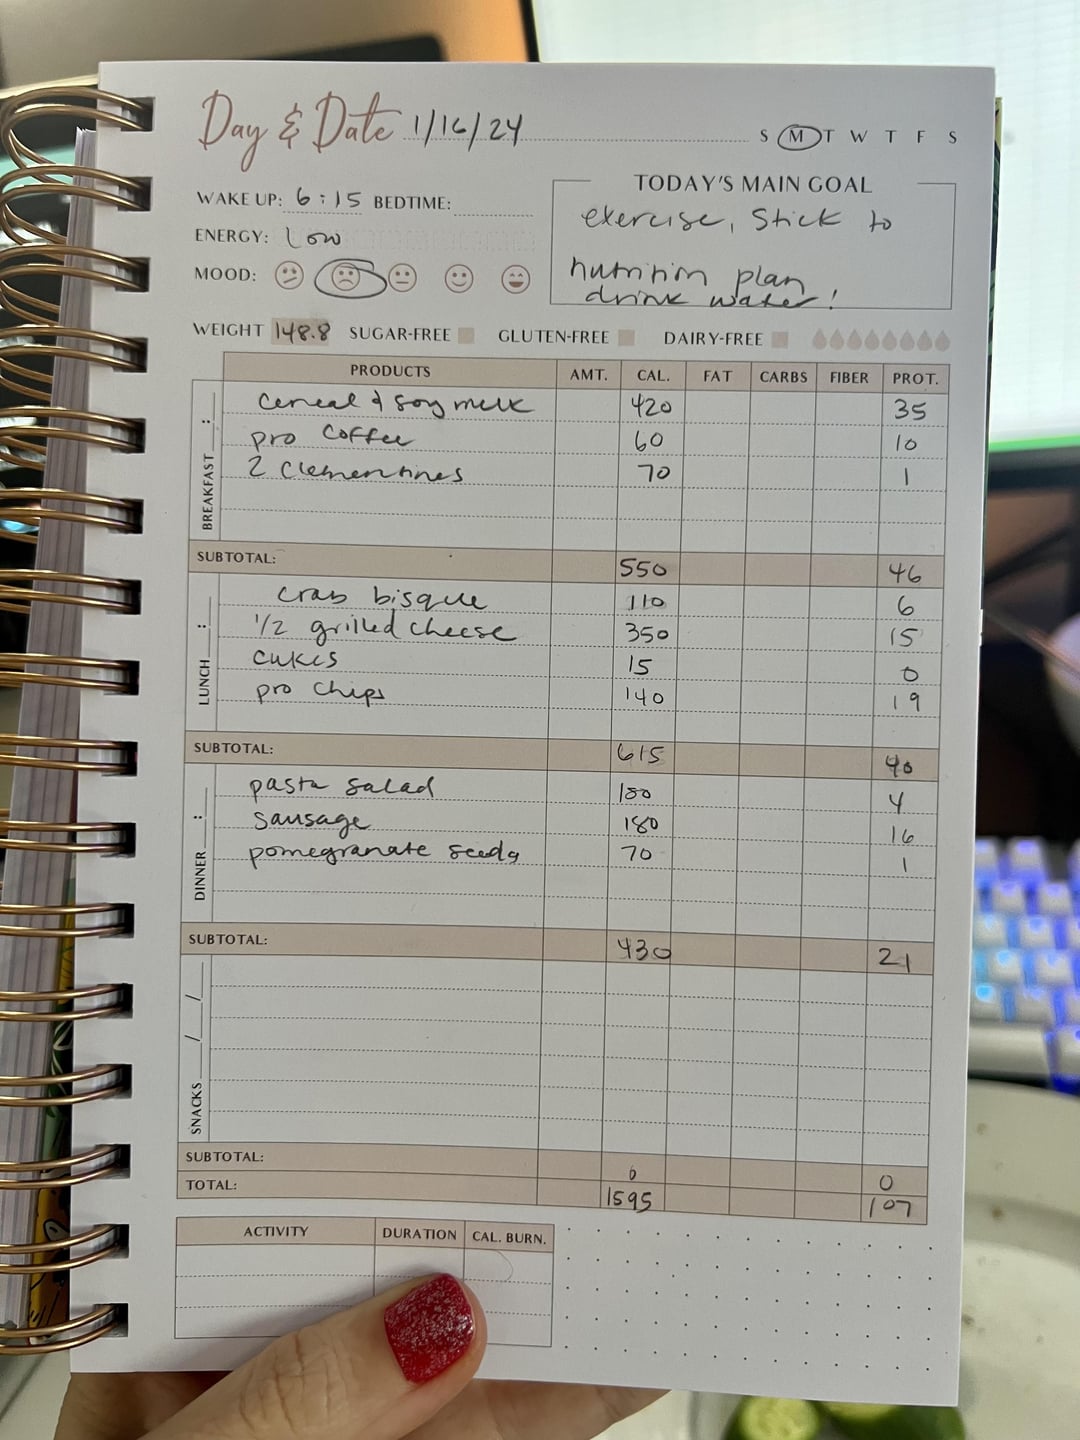 Day & Date 1/16/24 S M T W T F S
WAKE UP: 6:15 BEDTIME:
ENERGY: Low
MOOD:
TODAY'S MAIN GOAL
exercise, Stick to
nutrition plan
drink water!
WEIGHT 148.8 SUGAR-FREE GLUTEN-FREE DAIRY-FREE
PRODUCTS AMT. CAL. FAT CARBS FIBER PROT.
BREAKFAST :
cereal & soy milk 420 35
pro coffee 60 10
2 clementines 70 1
SUBTOTAL: 550 46
LUNCH :
crab bisque 110 6
1/2 grilled cheese 350 15
cukes 15 0
pro chips 140 19
SUBTOTAL: 615 40
DINNER :
pasta salad 180 4
sausage 180 16
pomegranate seeds 70 1
SUBTOTAL: 430 21
SNACKS / /
SUBTOTAL: 0 0
TOTAL: 1595 107
ACTIVITY DURATION CAL. BURN.